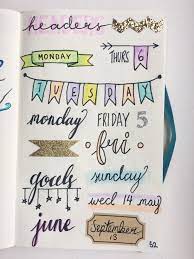 headers
MONDAY
THURS 6
TUESDAY
monday
FRIDAY 5
fri
goals
sunday
wed 14 may
june
September
13
52